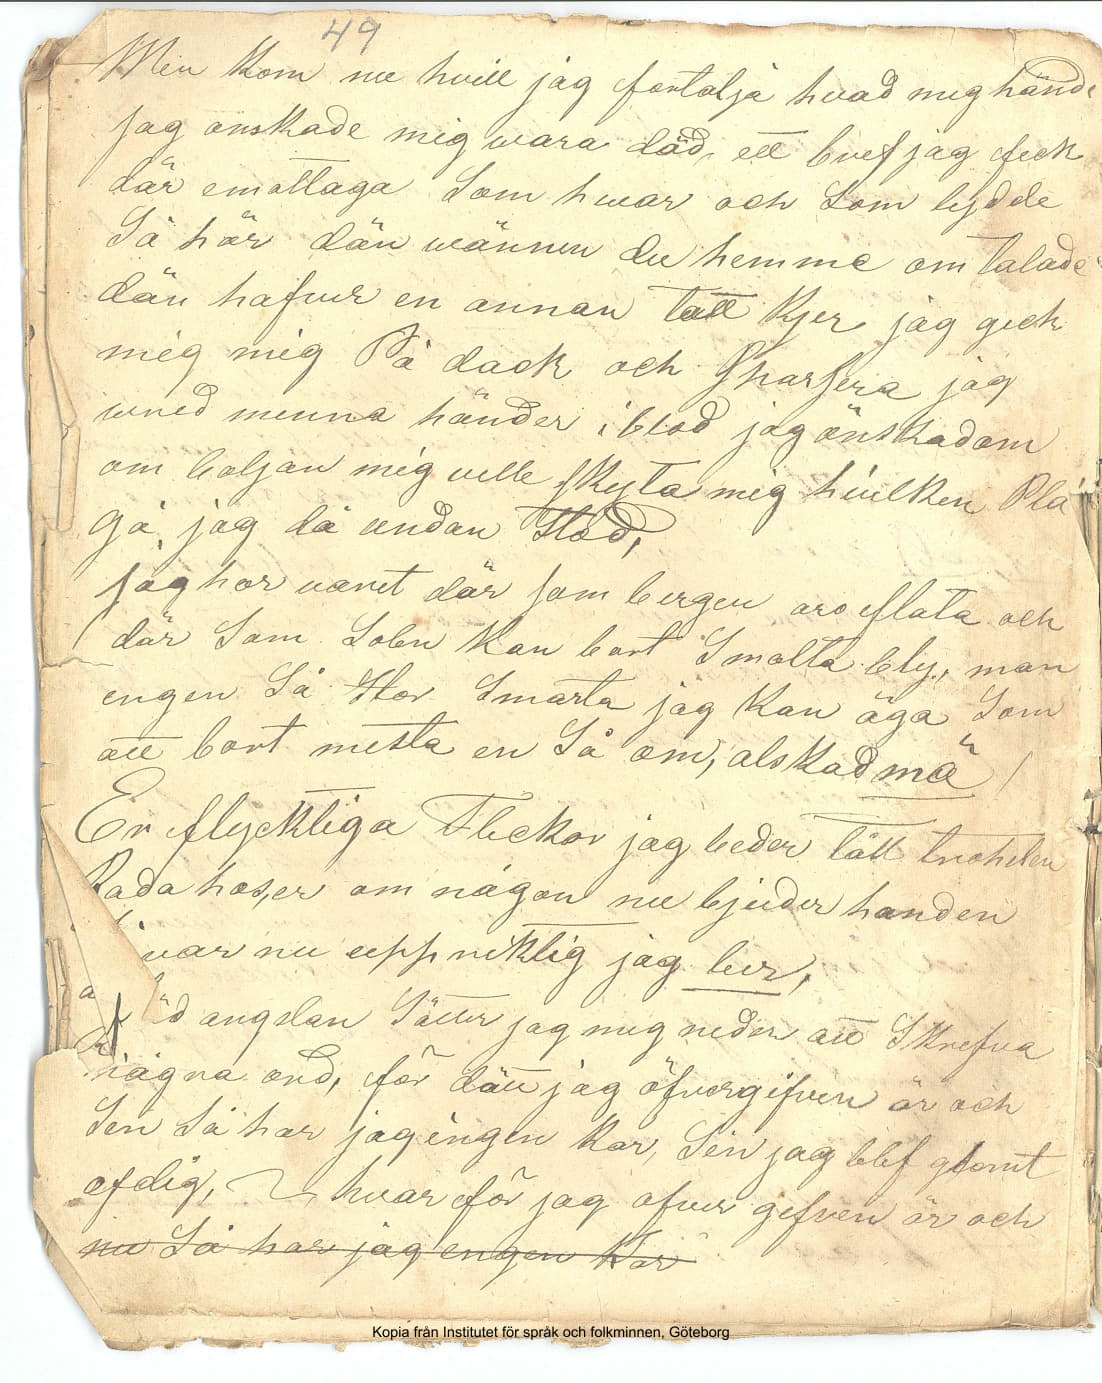 49
Men kom nu hvill jag fortalja hvad mig hände
jag onskade mig vara död, ett bref jag fick
där emottaga Som hwar och Som lydde
Så här dän wännen du hemme om talade
dän hafver en annan tatt kjer jag geck
mig mig På dack och Sparsera jag
wred menna händer i blod jag önskadom
om boljan mig velle skyta mig hvilken Plå
gå, jag då undan Stod,
jag har varet där som bergen aro flata och
där Som Solen kan bort Smalta bly, man
engen Så Stor Smarta jag kan äga Som
att bort mista en Så om, alskad mö
Er flycktiga Flickor jag beder lätt trohden
Rada hos,er om någon nu bjuder handen
var nu uppriktig jag ber,
angslan Sätter jag mig neder att Skrefva
några ord, för dätt jag öfvergifven är och
Sen Så har jag ingen kar, Sen jag blef glomt
af dig, hvar för jag ofver gefven är och
nu Så har jag engen Kar
Kopia från Institutet för språk och folkminnen, Göteborg